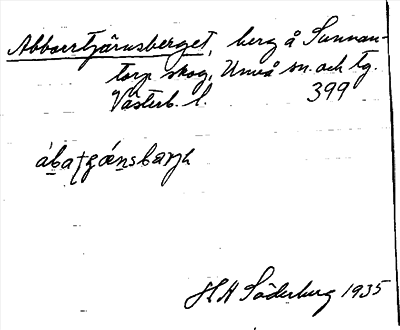 Abborrtjärnsberget, berg å Sunnan-
torp skog, Umeå sn. och tg.
Västerb. l. 399
H Söderberg 1935